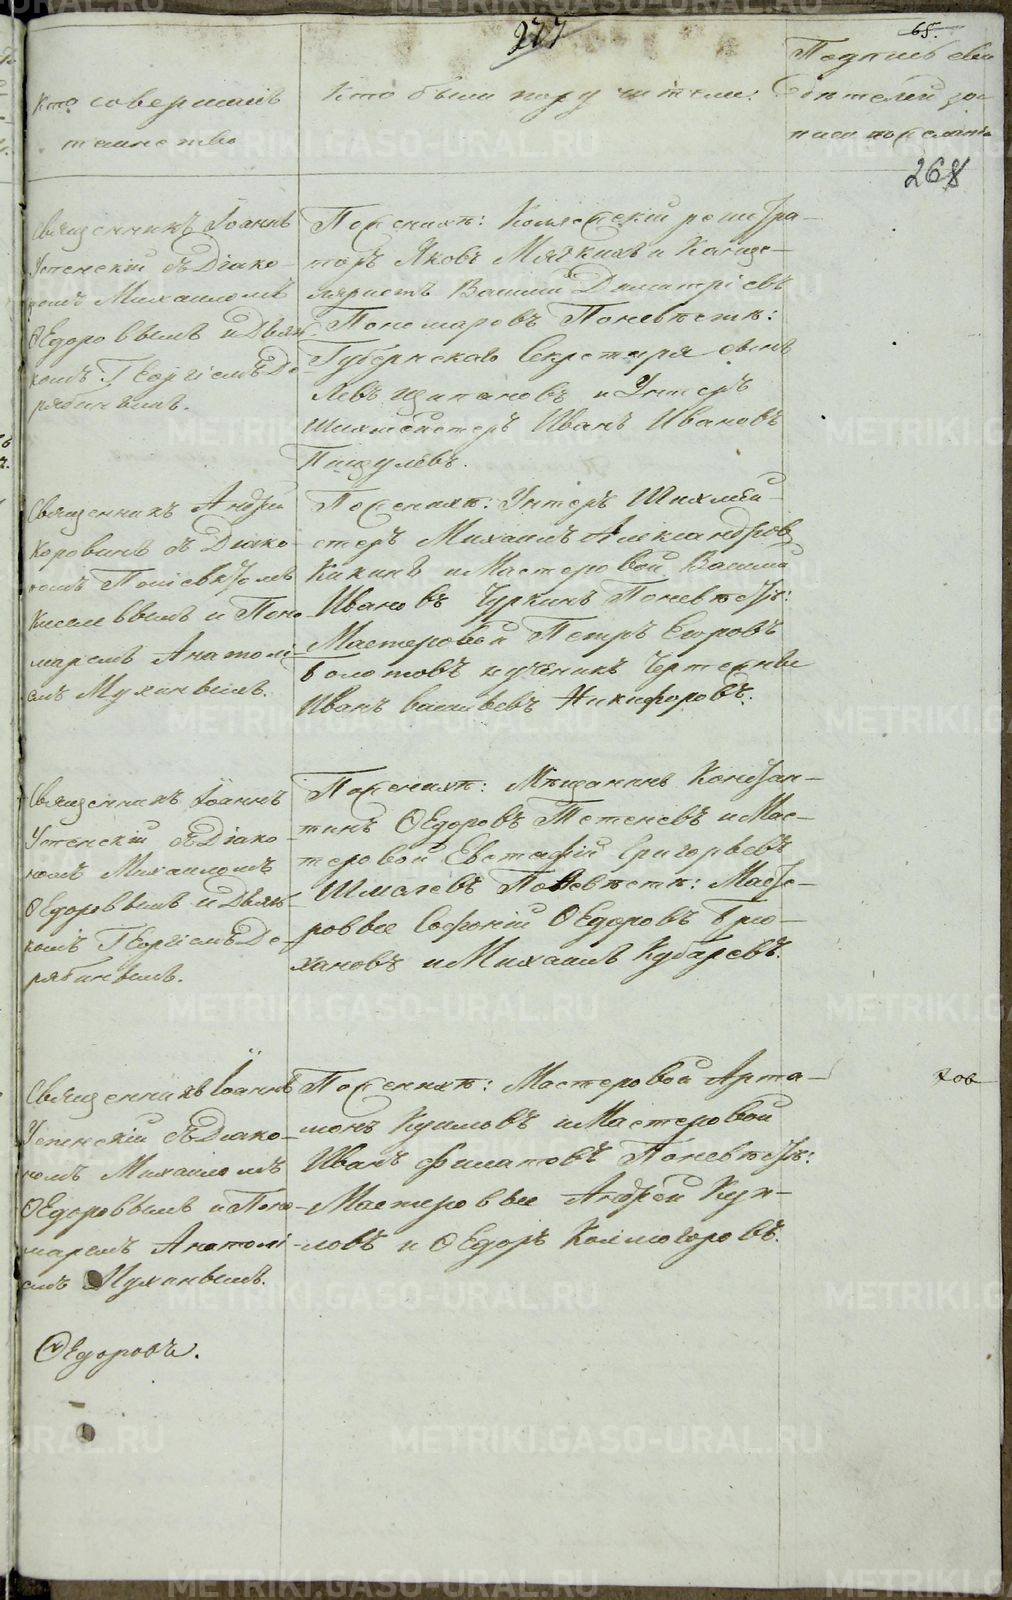 277
65.
268
Кто совершалъ
таинство
Кто были поручители:
Подпись сви
дѣтелей за-
писи по желанію
Священникъ Іоаннъ
Успенскій съ Діако-
номъ Михаиломъ
Ѳедоровымъ и Дьяч
комъ Георгіемъ Де-
рябинымъ.
По женихѣ: Коллежскій регистра-
торъ Яковъ Мягкихъ и Канце-
ляристъ Василій Димитріевъ
Пономаревъ По невѣстѣ:
Губернскаго Секретаря сынъ
Левъ Щипановъ и Унтеръ
Шихмейстеръ Иванъ Ивановъ
Пищулёвъ.
Священникъ Андрей
Коровинъ съ Діако-
номъ
Киселевымъ и Поно
маремъ Анатолі-
емъ Мухинымъ.
По женихѣ: Унтеръ Шихмей-
стеръ Михаилъ Александровъ
Кикинъ и Мастеровой Василій
Ивановъ Чуркинъ По невѣстѣ:
Мастеровой Петръ Егоровъ
Болотовъ и ученикъ Чертежный
Иванъ Васильевъ Никифоровъ.
Священникъ Іоаннъ
Успенскій съ Діако-
номъ Михаиломъ
Ѳедоровымъ и Дьяч-
комъ Георгіемъ Де-
рябинымъ.
По женихѣ: Мѣщанинъ Констан-
тинъ Ѳедоровъ Тетеневъ и Мас-
теровой Евстафій Григорьевъ
Шмагевъ По невѣстѣ: Масте-
ровые Софоній Ѳедоровъ Брю-
хановъ и Михаилъ Кубаревъ.
Священникъ Іоаннъ
Успенскій съ Діако-
номъ Михаиломъ
Ѳедоровымъ и Поно-
маремъ Анатолі-
емъ Мухинымъ.
По женихѣ: Мастеровой Арта-
монъ Куиловъ и Мастеровой
Иванъ Филатовъ По невѣстѣ:
Мастеровые Андрей Куи-
ловъ и Ѳедоръ Колмогоровъ.
Ѳедоровъ.
METRIKI.GASO-URAL.RU